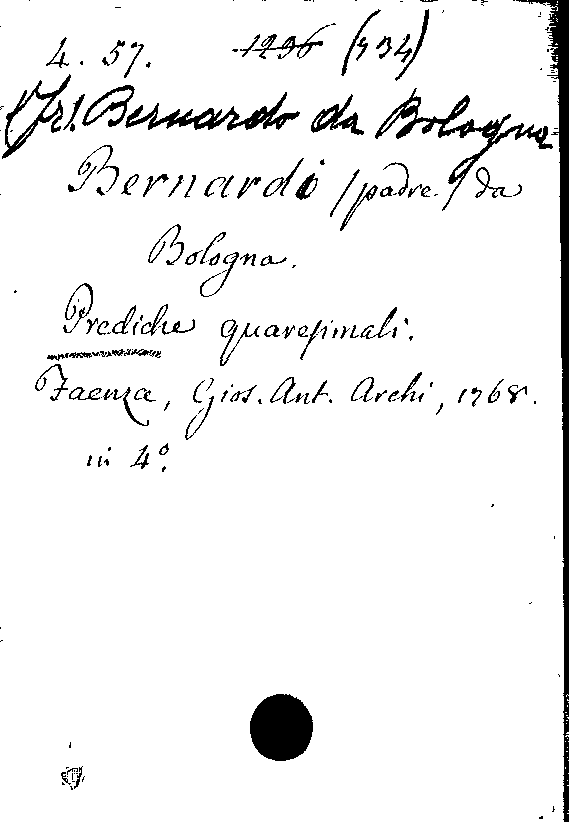 4. 57. 1296 (734)
(Fr). Bernardo da Bologna
Bernardi /padre/ da
Bologna.
Prediche quaresimali.
Faenza, Gios. Ant. Archi, 1768.
in 4º.